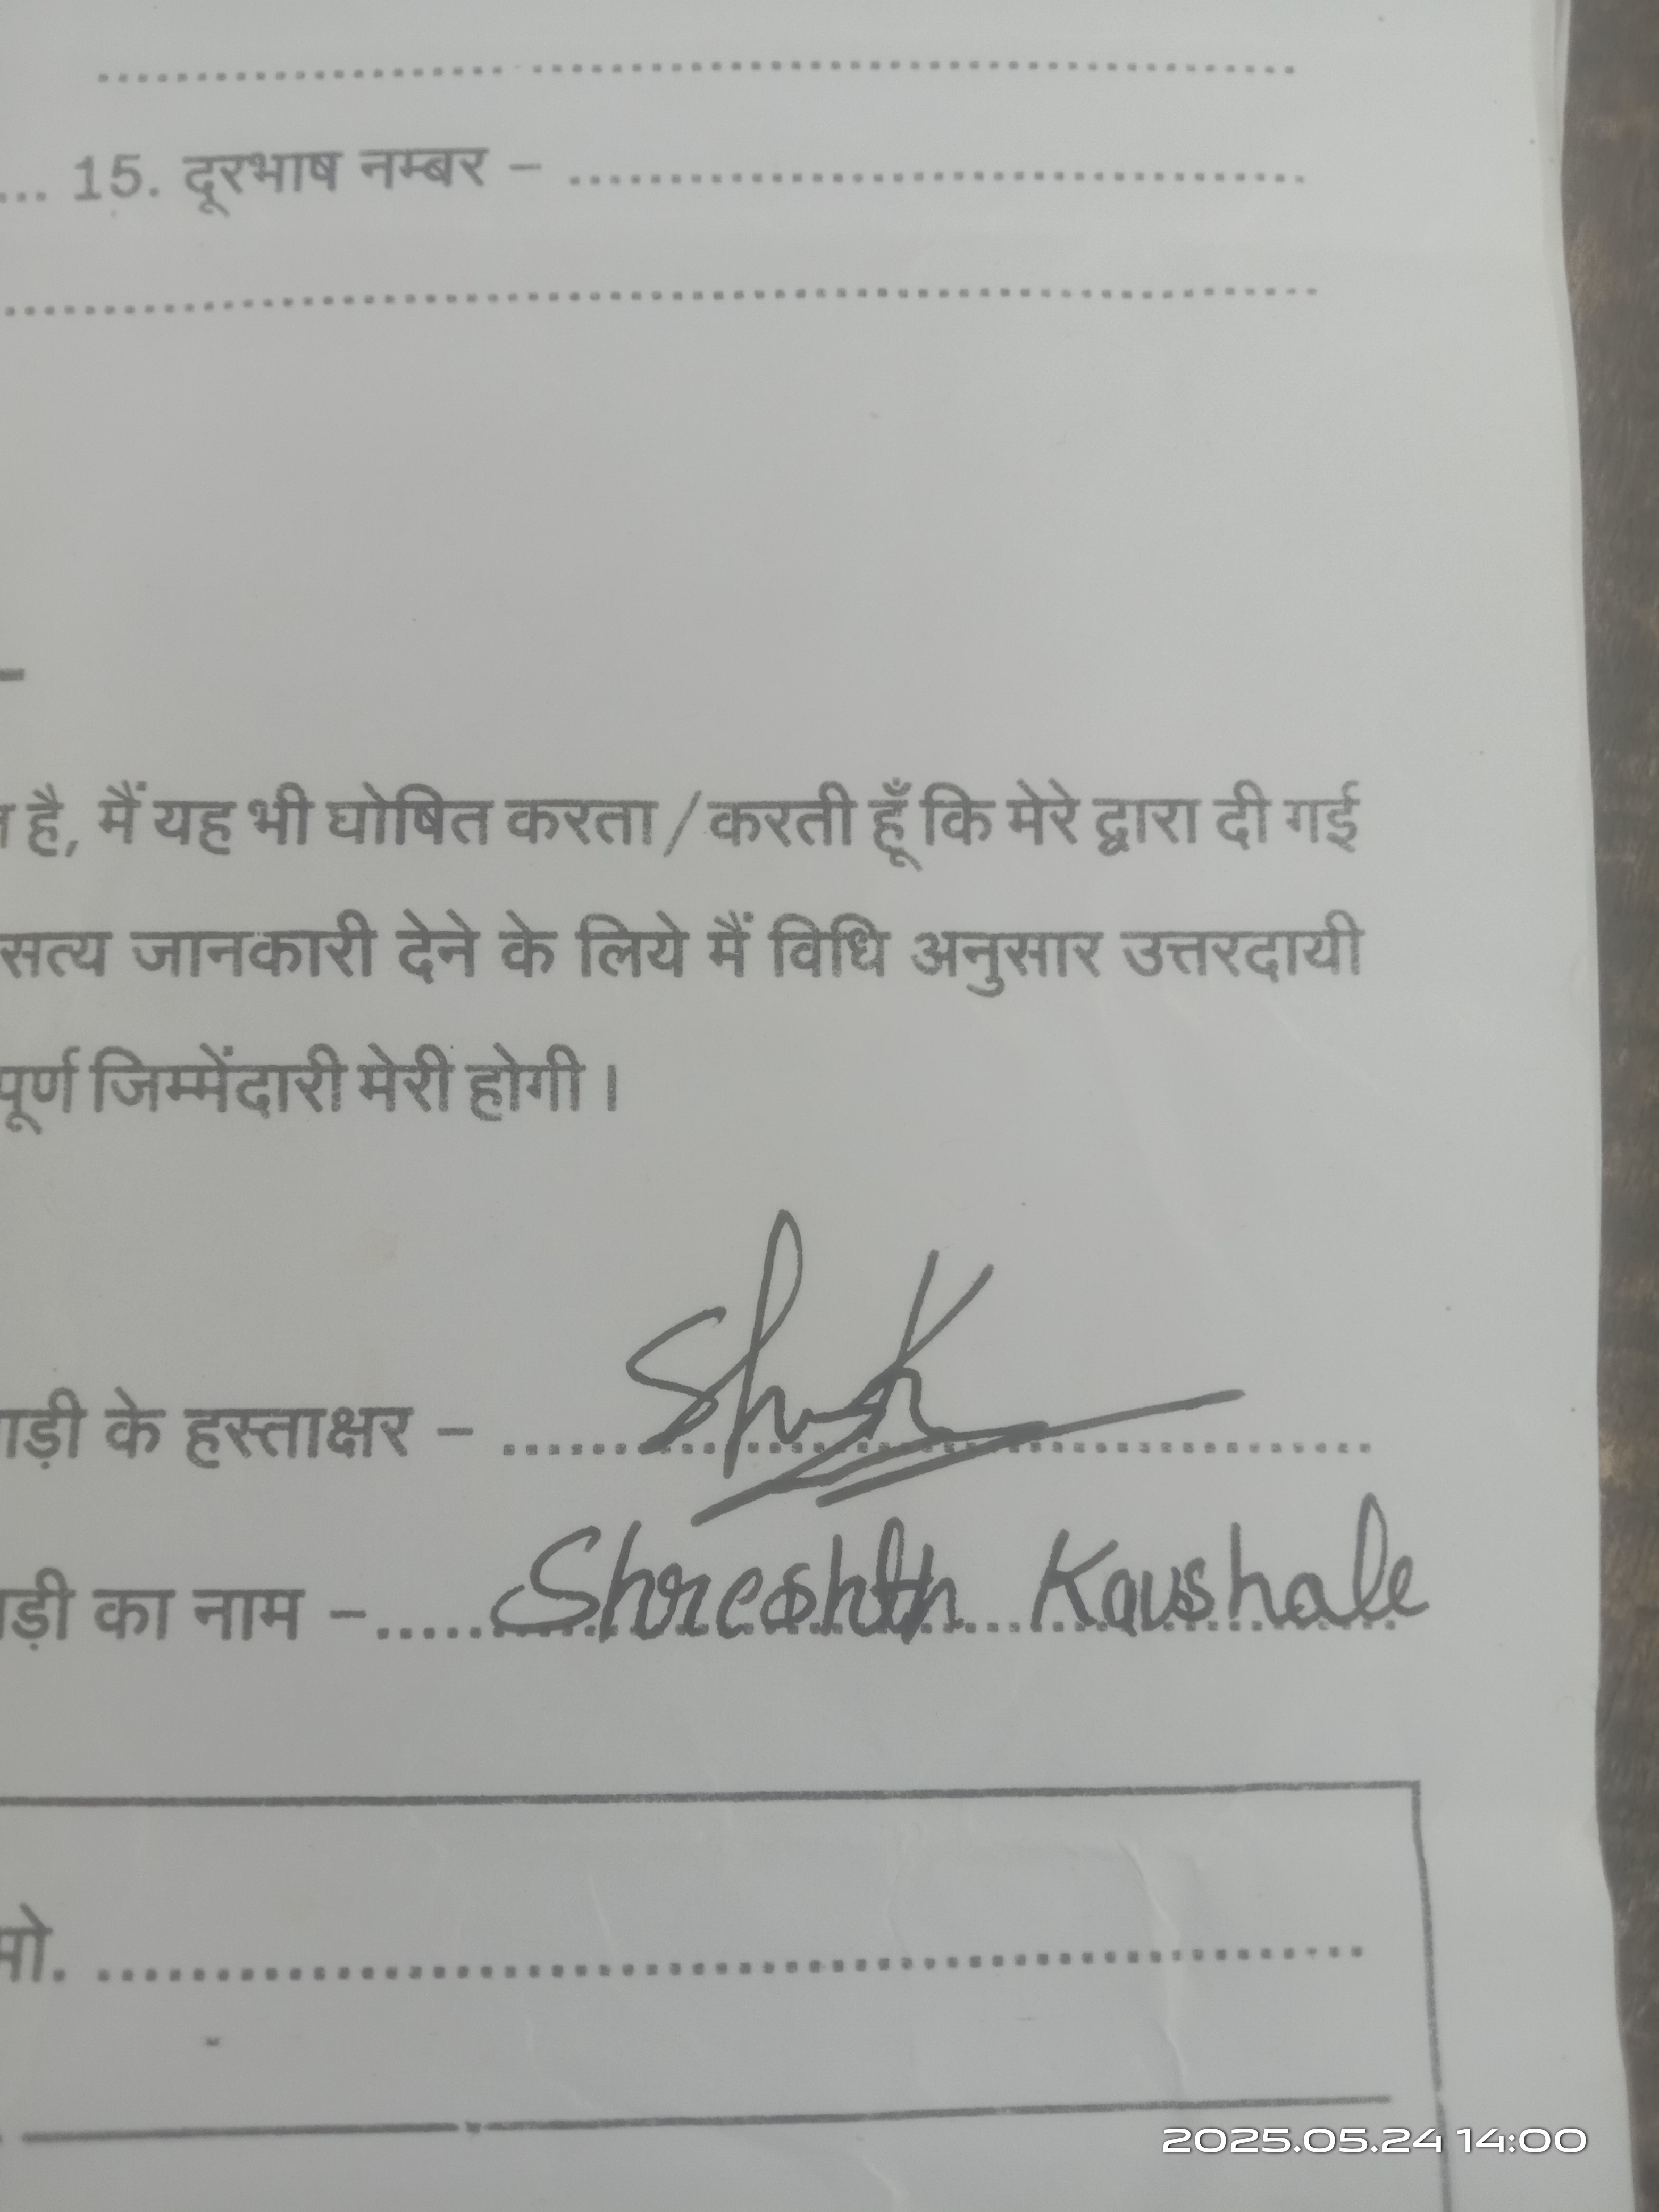 15. दूरभाष नम्बर –
है, मैं यह भी घोषित करता/करती हूँ कि मेरे द्वारा दी गई
सत्य जानकारी देने के लिये मैं विधि अनुसार उत्तरदायी
पूर्ण जिम्मेंदारी मेरी होगी।
ड़ी के हस्ताक्षर – ShrK
ड़ी का नाम – Shreshth Kaushale
मो.
2025.05.24 14:00